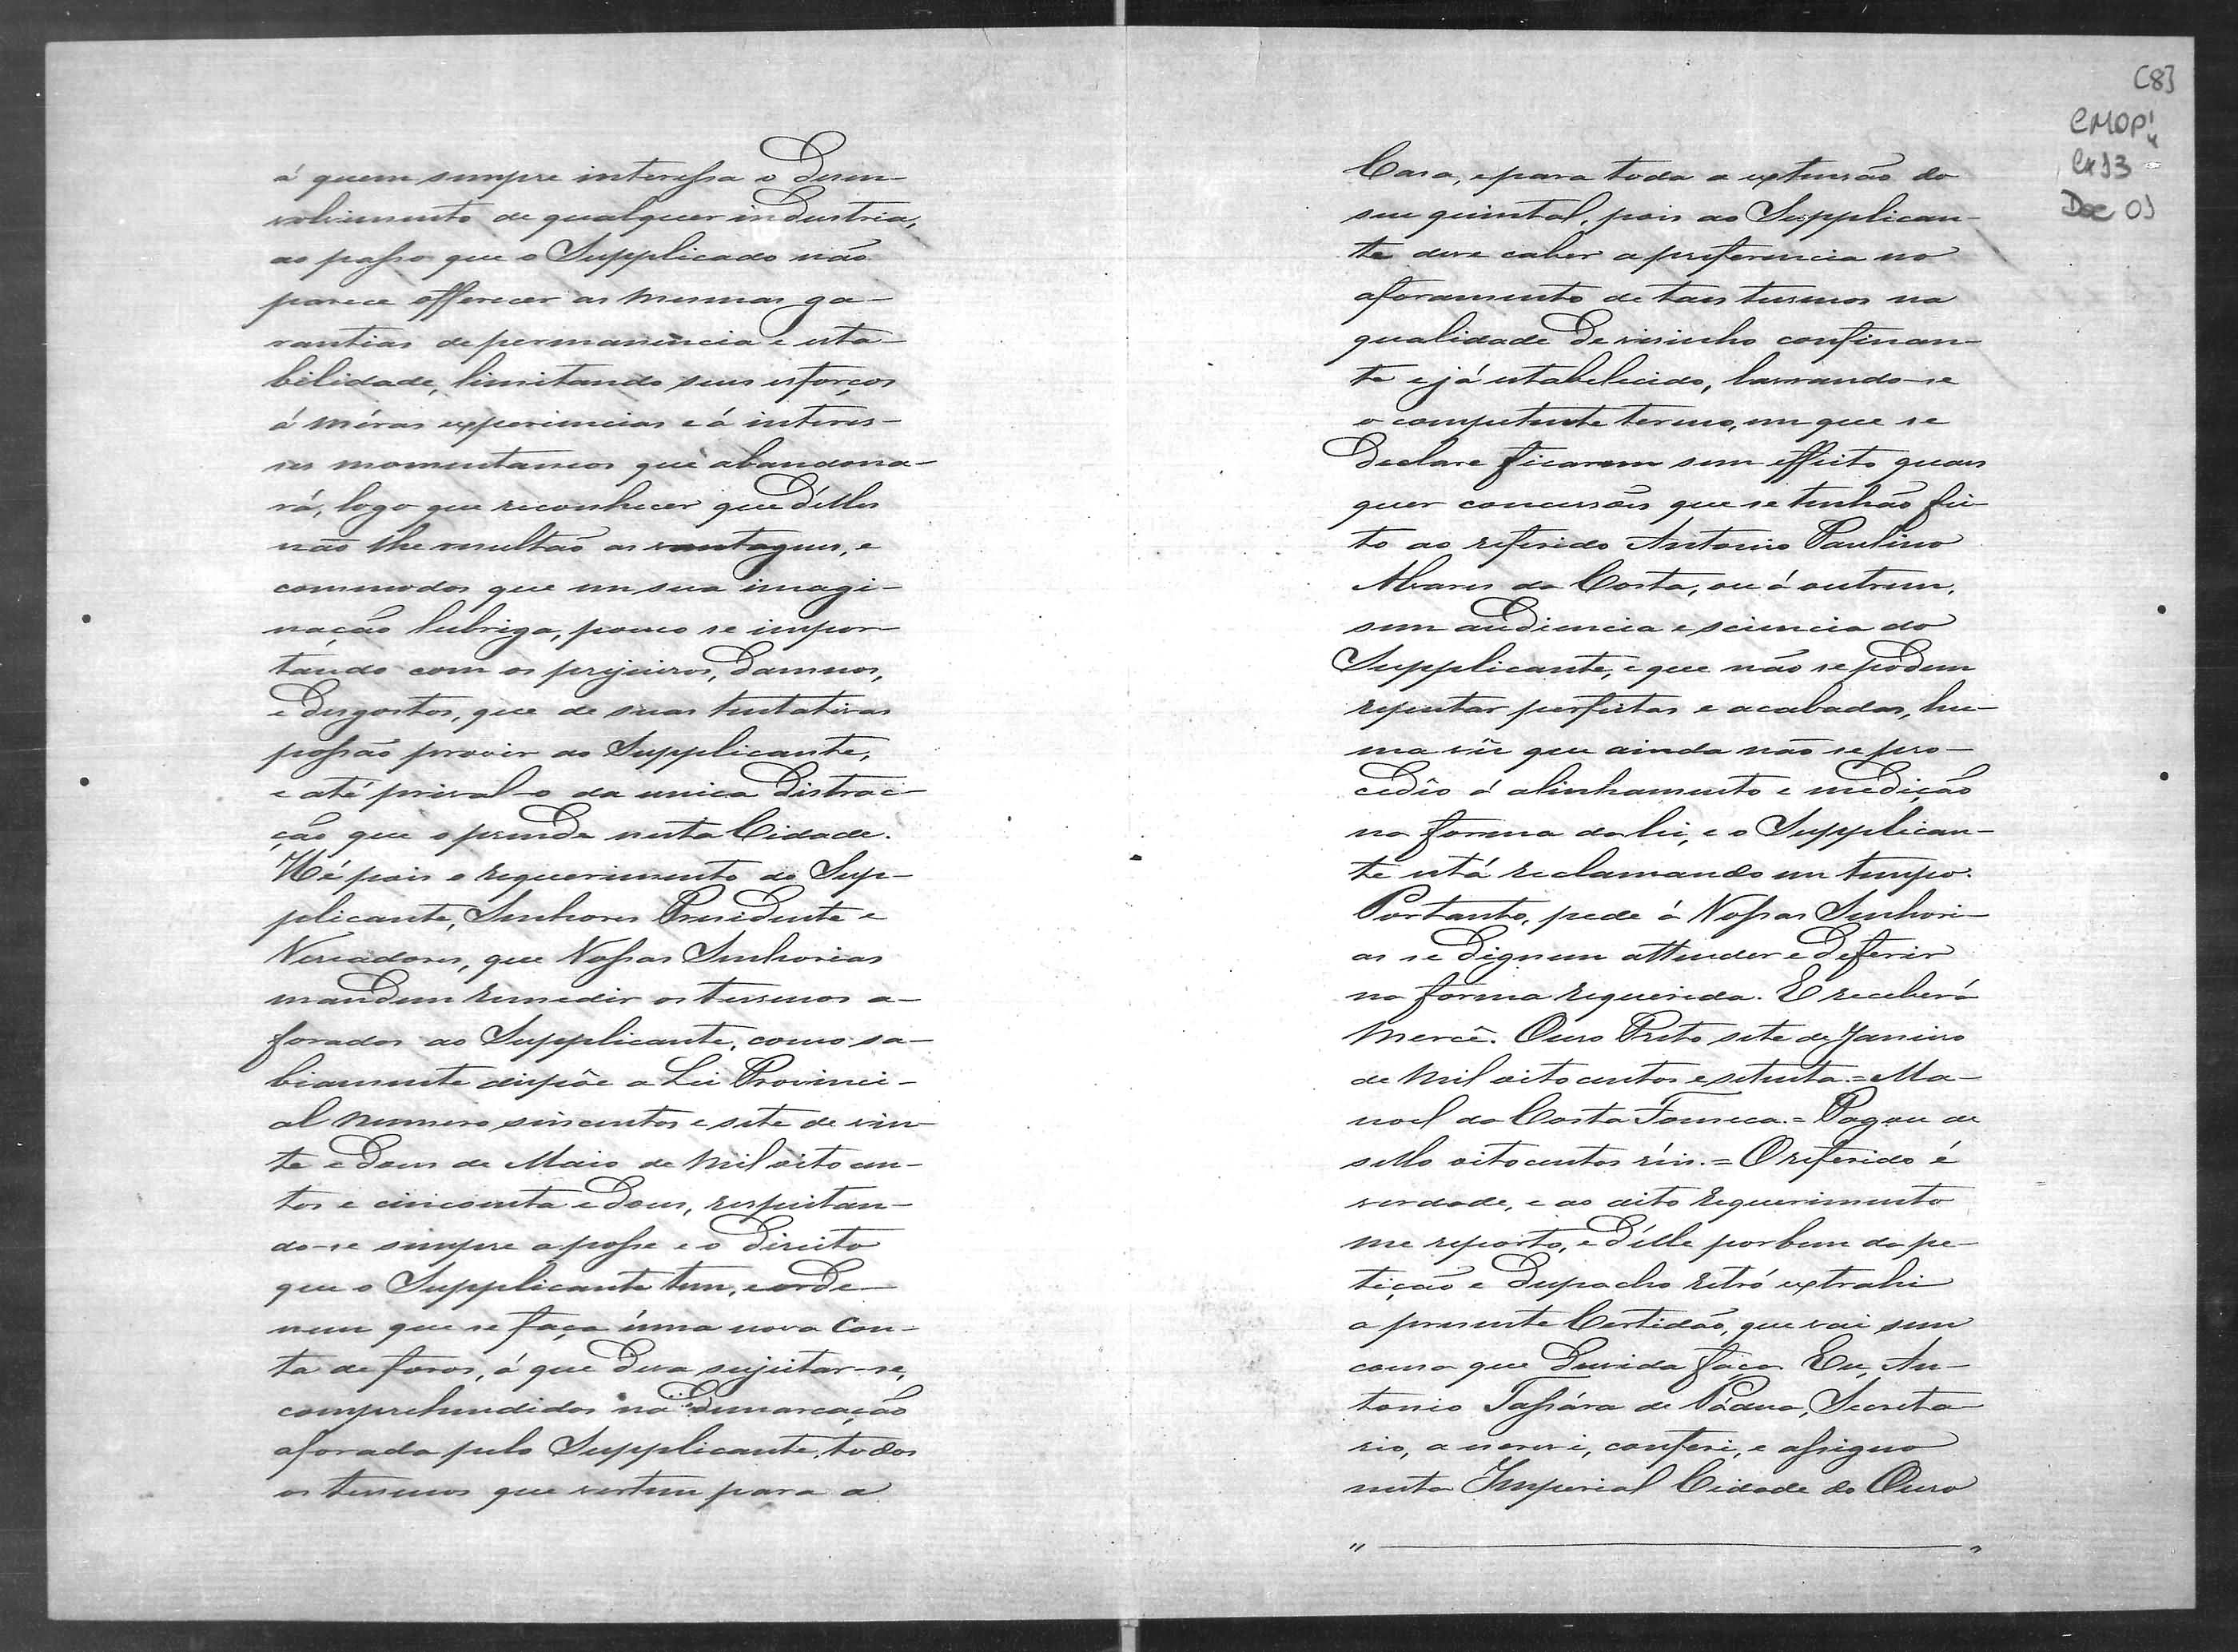 á quem sempre interessa o desen-
volvimento de qualquer industria,
ao passo que o Supplicado não
parece offerecer as mesmas ga-
rantias de permanencia e esta-
bilidade, limitando seus esforços
á méras experiencias e á interes-
ses momentaneos que abandona-
rá, logo que reconhecer que d'elles
não lhe resultão as vantagens, e
commodos que em sua imagi-
nação lubriga, pouco se impor-
tando com os prejuizos, damnos,
e desgostos, que de suas tentativas
possão provir ao Supplicante,
e até prival-o da unica distrac-
ção que o prende nesta Cidade.
He pois o requerimento do Sup-
plicante, Senhores Presidente e
Vereadores, que Vossas Senhorias
mandem remedir os terrenos a-
forados ao Supplicante, como sa-
biamente dispõe a Lei Provinci-
al numero seiscentos e sete de vin-
te e dous de Maio de mil oito cen-
tos e cincoenta e dous, respeitan-
do-se sempre a posse e o direito
que o Supplicante tem, e orde-
nem que se faça uma nova con-
ta de foros, á que deva sujeitar-se,
comprehendidos na demarcação
aforada pelo Supplicante, todos
os terrenos que vertem para a
Casa, e para toda a extensão do
seu quintal, pois ao Supplican-
te deve caber a preferencia no
aforamento de taes terrenos na
qualidade de visinho confinan-
te e já estabelecido, lavrando-se
o competente termo, em que se
declare ficarem sem effeito quaes
quer concessões que se tenhão fei-
to ao referido Antonio Paulino
Alvares da Costa, ou á outrem,
sem audiencia e sciencia do
Supplicante, e que não se podem
reputar perfeitas e acabadas, hu-
ma vez que ainda não se pro-
cedêo á alinhamento e medição
na forma da lei, e o Supplican-
te está reclamando em tempo.
Portanto, pede á Vossas Senhori-
as se dignem attender e deferir
na forma requerida. E receberá
Mercê. Ouro Preto sete de Janeiro
de mil oito centos e setenta. = Ma-
noel da Costa Fonseca. = Pagou de
sello oitocentos réis. = O referido é
verdade, e ao dito requerimento
me reporto, e d'elle por bem da pe-
tição e despacho retró extrahi
a presente Certidão, que vai sem
cousa que duvida faça. Eu, An-
tonio Tassára de Pádua, Secreta-
rio, a escrevi, conferi, e assigno
nesta Imperial Cidade do Ouro
[8]
CMOP
Cx 93
Doc 01